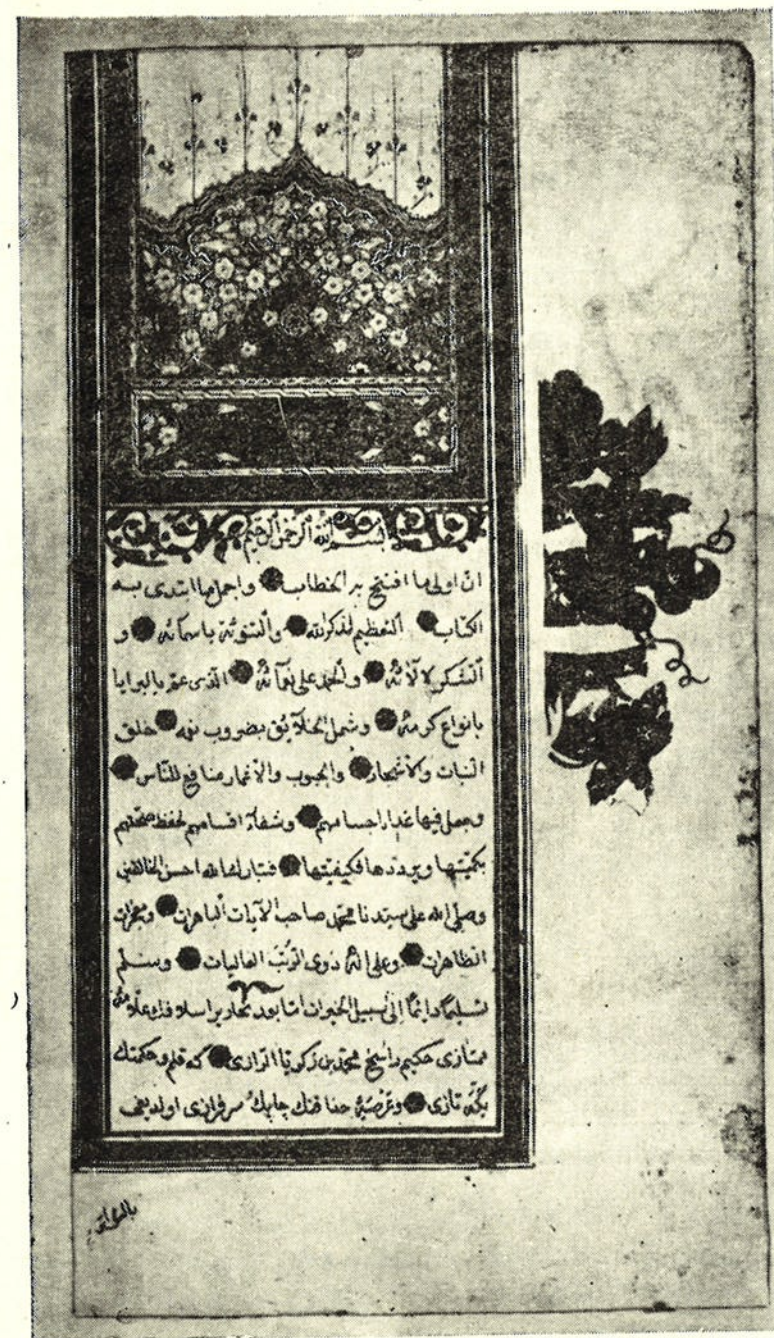 بسم الله الرحمن الرحيم
ان اولى ما افتتح به الخطاب واجمل ما ابتدى به
الكتاب التعظيم لذكر الله والتنويه باسمائه و
الشكر لآلائه والحمد على نعمائه الذى عم بالبرايا
بانواع كرمه وشمل الخلايق بضروب نعمه خلق
النبات والاشجار والحبوب والاثمار منافع للناس
وجعل فيها غذاء اجسامهم وشفاء اقسامهم لحفظ صحتهم
بكميتها وكيفيتها فتبارك الله احسن الخالقين
وصلى الله على سيدنا محمد صاحب الآيات الباهرات ومعجزات
الظاهرات وعلى اله ذوى الرتب العاليات وسلم
تسليما دائما الى سبيل الخيرات اما بعد نحارير اسلافك علامه
ممتازى حكيم راسخ محمد بن زكريا الرازى كه قلم وحكمتك
يكه تازى وعرصه حذاقتك چابك سرفرازى اولديغى